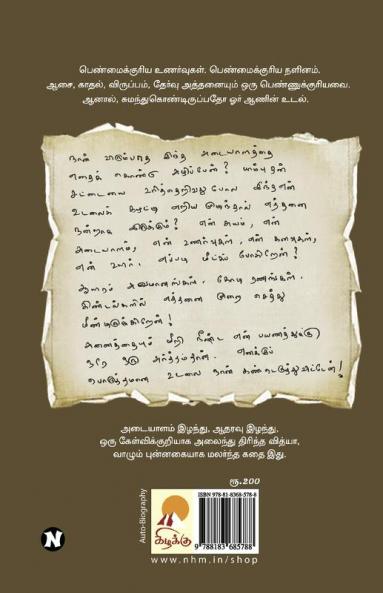 பெண்மைக்குரிய உணர்வுகள். பெண்மைக்குரிய நளினம்.
ஆசை, காதல், விருப்பம், தேர்வு அத்தனையும் ஒரு பெண்ணுக்குரியவை.
ஆனால், சுமந்துகொண்டிருப்பதோ ஓர் ஆணின் உடல்.
நான் விரும்பாத இந்த அடையாளத்தை
எதைக் கொண்டு அழிப்பேன்? பாம்பு தன்
சட்டையை உரித்தெறிவது போல இந்த என்
உடலைக் கழட்டி எறிய முடிந்தால் எத்தனை
நன்றாக இருக்கும்? என் சுயம், என்
அடையாளம், என் உணர்வுகள், என் கனவுகள்,
என் உயிர். எப்படி மீட்கப் போகிறேன்?
ஆயிரம் அவமானங்கள். கோடி ரணங்கள்.
கிண்டல்களில் எத்தனை முறை செத்து
மீண்டிருக்கிறேன்!
அனைத்தையும் மீறி நீண்ட என் பயணத்துக்கு
ஒரே ஒரு அர்த்தம்தான். எனக்குப்
பொருத்தமான உடலை நான் கண்டெடுத்துவிட்டேன்!
அடையாளம் இழந்து, ஆதரவு இழந்து,
ஒரு கேள்விக்குறியாக அலைந்து திரிந்த வித்யா,
வாழும் புன்னகையாக மலர்ந்த கதை இது.
ரூ.200
Auto-Biography
கிழக்கு
ISBN 978-81-8368-578-8
9 788183 685788
www.nhm.in/shop
N